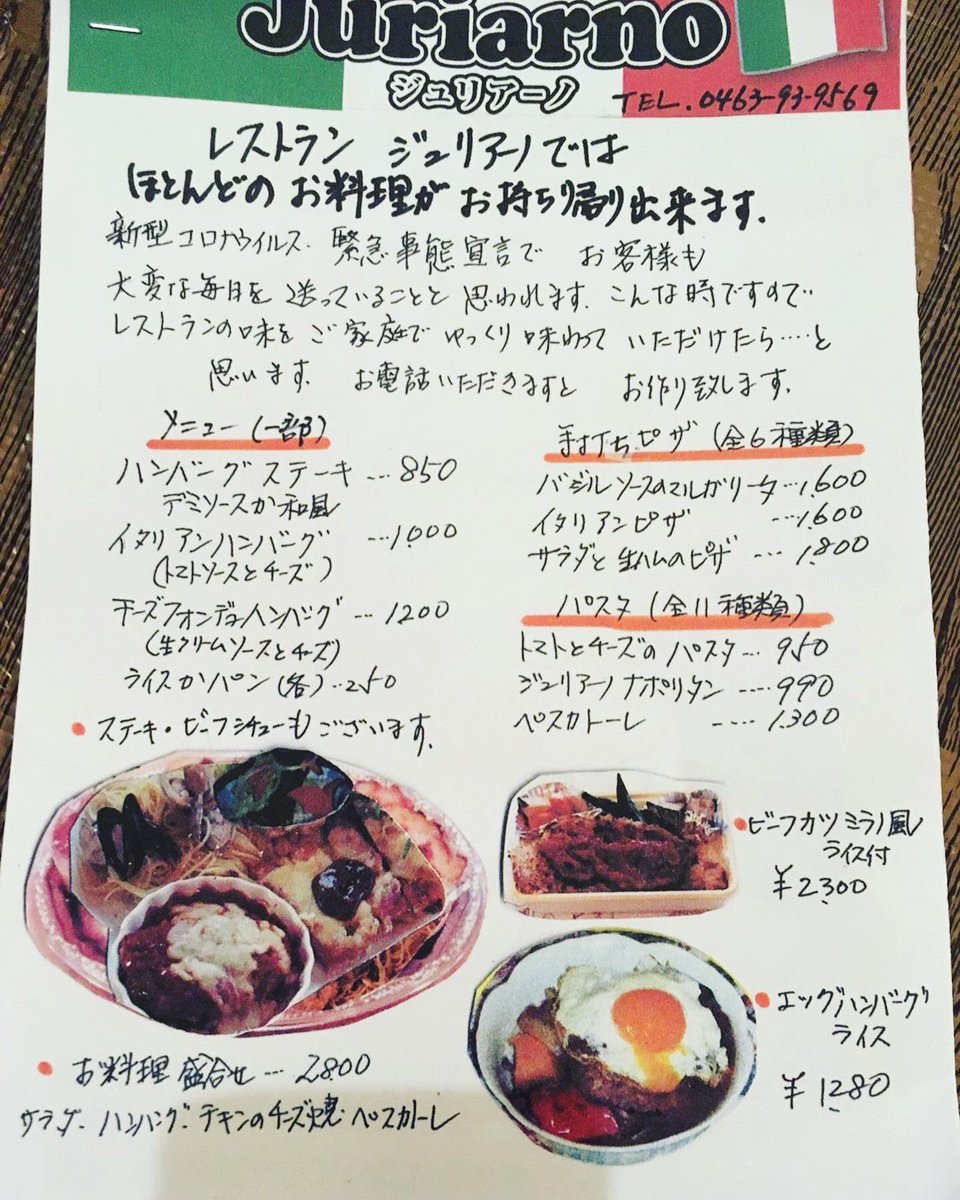 Juriarno
ジュリアーノ
TEL. 0463-93-9569
レストラン ジュリアーノでは
ほとんどの お料理が お持ち帰り出来ます.
新型コロナウイルス. 緊急事態宣言で お客様も
大変な毎日を 送っていることと 思われます. こんな時ですので
レストランの味を ご家庭で ゆっくり 味わって いただけたら‥‥と
思います. お電話いただきますと お作り致します.
メニュー (一部)
ハンバーグステーキ …850
デミソースか和風
イタリアンハンバーグ …1.000
(トマトソースとチーズ)
チーズフォンデュハンバーグ …1200
(生クリームソースとチーズ)
ライスかパン (各) …250
• ステーキ・ビーフシチューもございます.
手打ちピザ (全6種類)
バジルソースのマルガリータ …1.600
イタリアンピザ …1.600
サラダと生ハムのピザ …1.800
パスタ (全11種類)
トマトとチーズのパスタ …950
ジュリアーノナポリタン ‥‥990
ペスカトーレ ‥‥1.300
• ビーフカツミラノ風
ライス付
¥2.300
• エッグハンバーグ
ライス
¥1.280
• お料理 盛合せ …2.800
サラダ. ハンバーグ. チキンのチーズ焼. ペスカトーレ